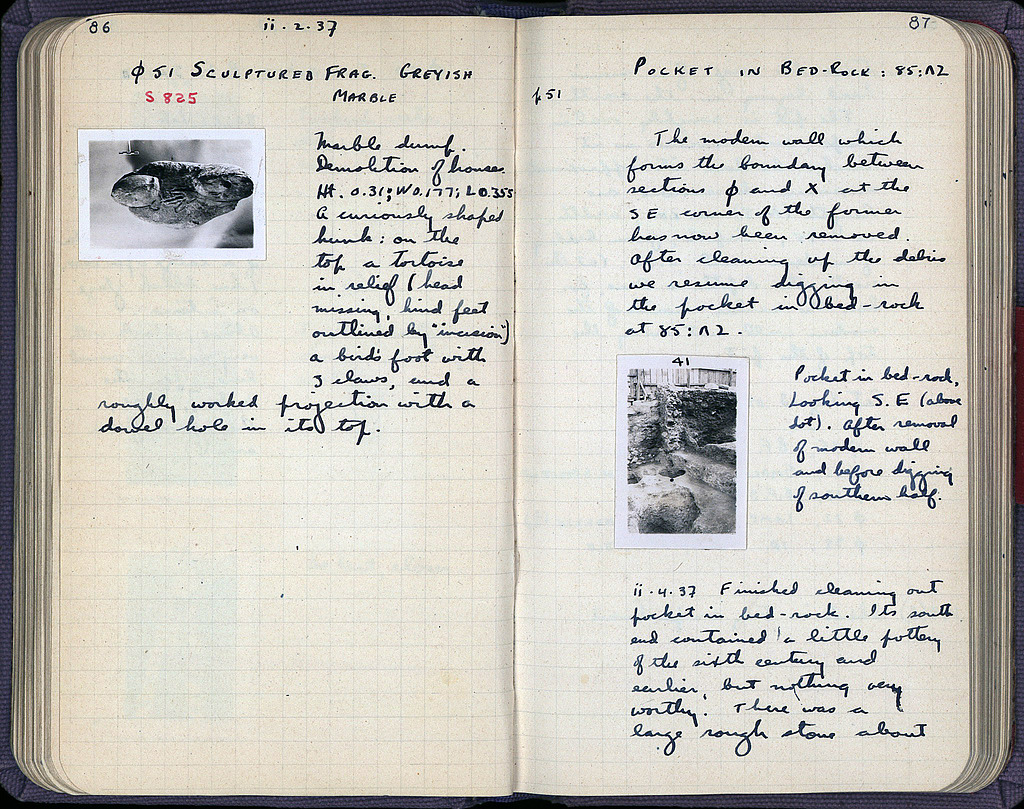 86
ii.2.37
φ 51 SCULPTURED FRAG. GREYISH
S 825 MARBLE
Marble dump.
Demolition of houses.
Ht. 0.31; W 0.177; L 0.355
A curiously shaped
hunk: on the
top a tortoise
in relief (head
missing, hind feet
outlined by "incision")
a bird's foot with
3 claws, and a
roughly worked projection with a
dowel hole in its top.
87
POCKET IN BED-ROCK: 85:Λ2
p. 51
The modern wall which
forms the boundary between
sections φ and X at the
SE corner of the former
has now been removed.
After cleaning up the debris
we resume digging in
the pocket in bed-rock
at 85:Λ2.
41
Pocket in bed-rock,
Looking S.E (above
dot). After removal
of modern wall
and before digging
of southern half.
ii.4.37 Finished cleaning out
pocket in bed-rock. Its south
end contained a little pottery
of the sixth century and
earlier, but nothing very
worthy. There was a
large rough stone about